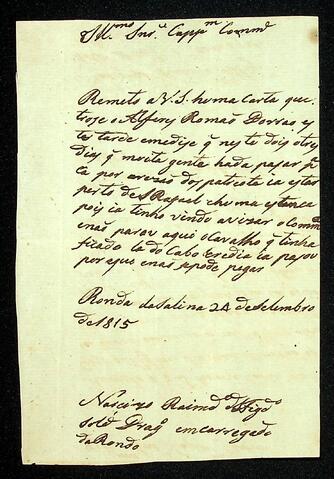 Illmo Snr. Cappm Comm
Remeto a V. S. huma Carta que
troje o Alferes Romaõ Dorras es
te tarde e me dije q nes te dois o tres
Dias q moita gente hada pasar pr
ca por a rezaõ dos patrosta ia estar
perto de S Rafael e huma estanca
pois ia tinho vindo avizar o Comm
enaõ parou aqui o Carvalho q tinha
ficado la do Cabo Eredia ia pasou
por aqui enaõ sepode pegar
Ronda da Salina 24 de Setembro
de 1815
Narcizo Raimdo de Figdo
sold Drag encarregado
da Rondo